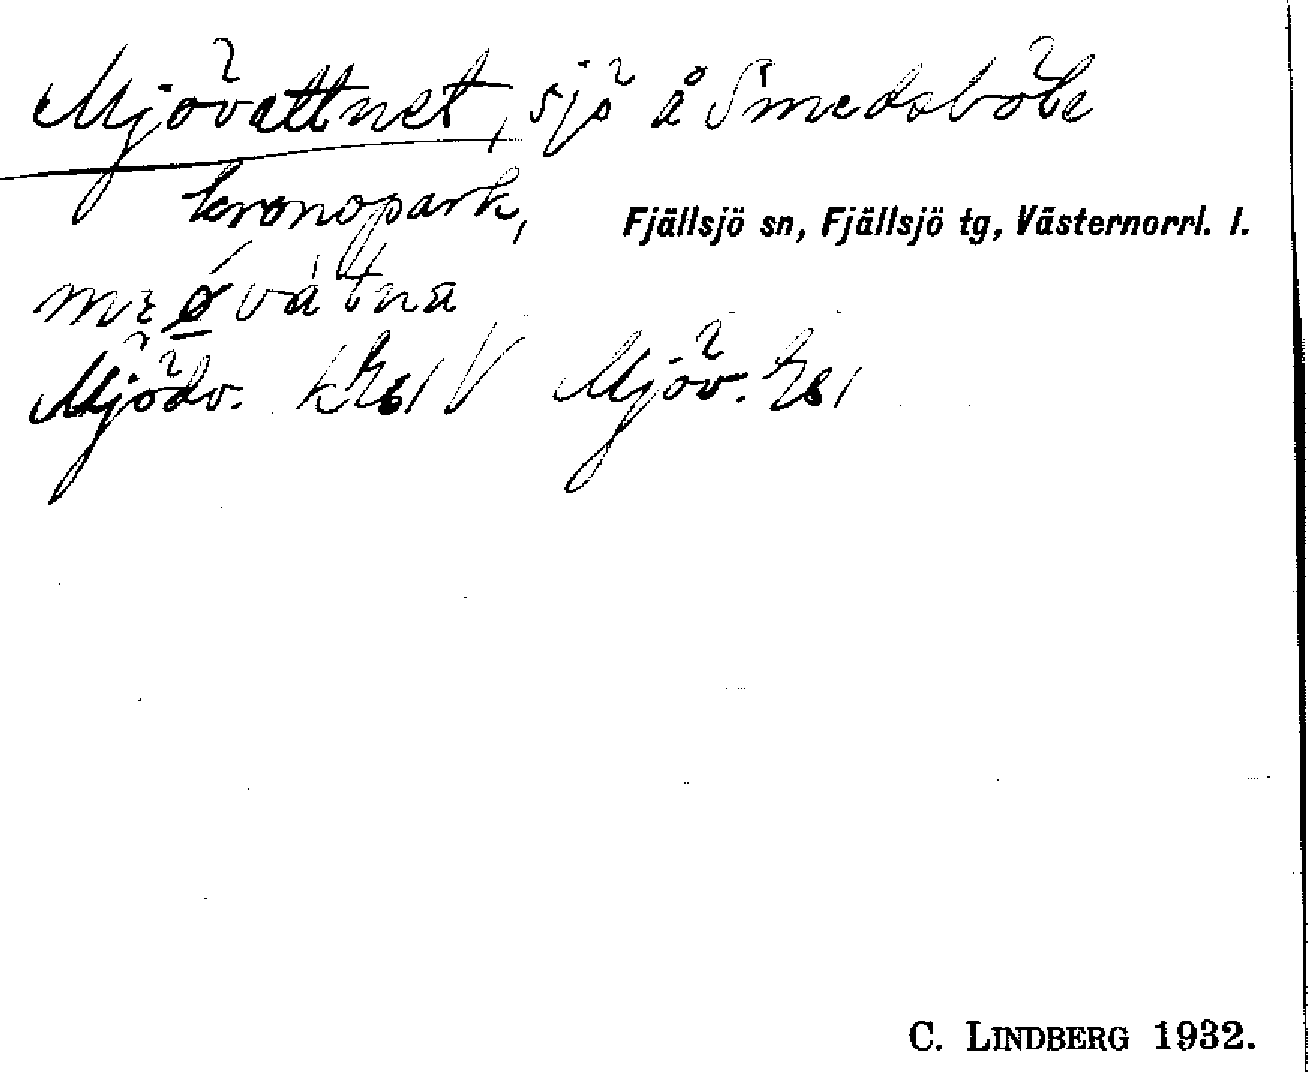 Mjövattnet, sjö å Smedsböle
kronopark, Fjällsjö sn, Fjällsjö tg, Västernorrl. l.
Mjödv. Mjöv.
C. LINDBERG 1932.